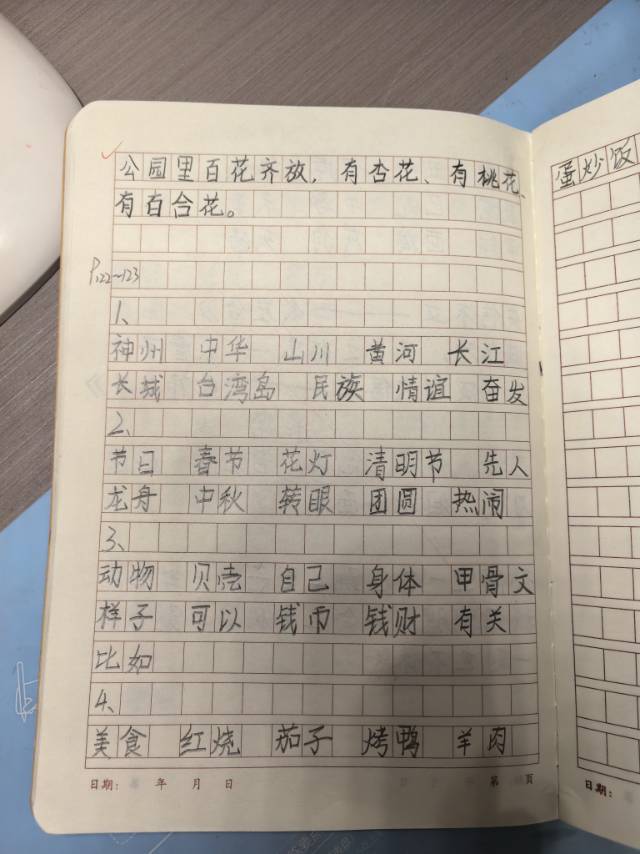 公园里百花齐放，有杏花、有桃花、
有百合花。
P122~123
1、
神州 中华 山川 黄河 长江
长城 台湾岛 民族 情谊 奋发
2、
节日 春节 花灯 清明节 先人
龙舟 中秋 转眼 团圆 热闹
3、
动物 贝壳 自己 身体 甲骨文
样子 可以 钱币 钱财 有关
比如
4、
美食 红烧 茄子 烤鸭 羊肉
日期： 年 月 日 第 页
蛋炒饭
日期：